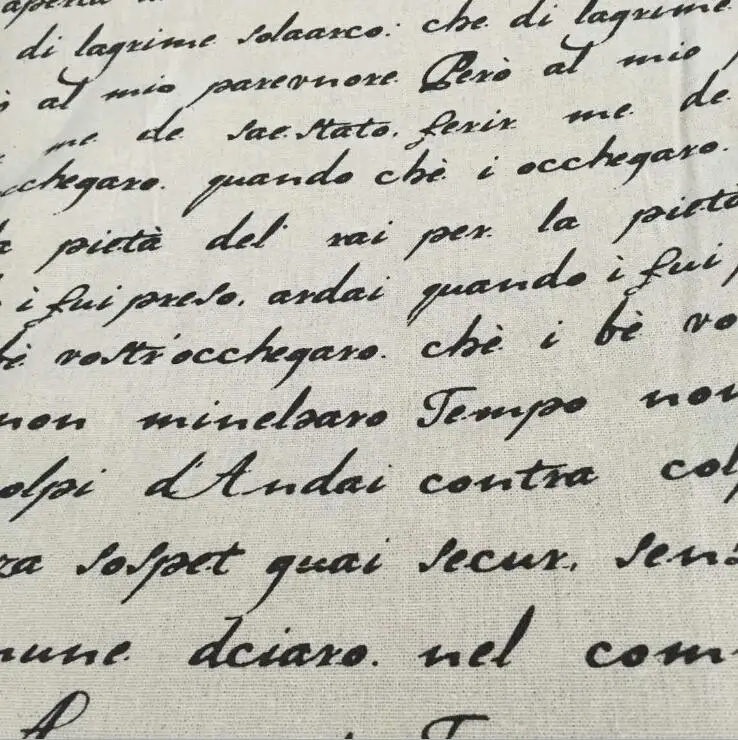 di lagrime solaarco: che di lagrime
al mio parevnore. Però al mio
me de sae stato. ferir me de
cchegaro. quando chè i occhegaro.
pietà del rai per la pietà
i fui preso. ardai quando i fui
bè vostr'occhegaro. chè i bè vo
non minelsaro Tempo non
olpi d'Andai contra colp
za sospet guai secur. senz
mune dciaro. nel com